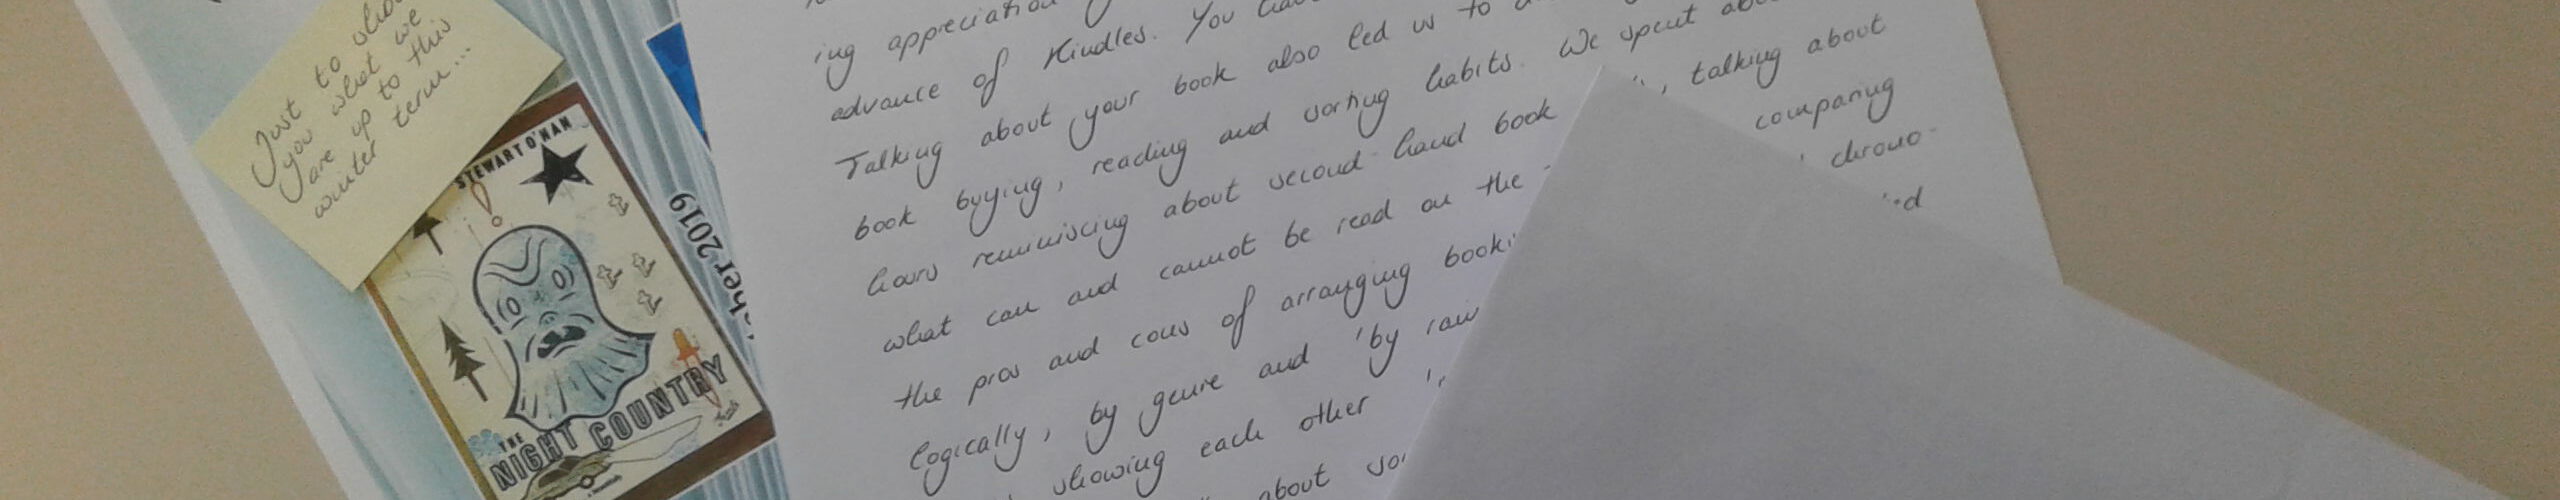 Just to show
you what we
are up to this
winter term...
STEWART O'NAN
THE
NIGHT COUNTRY
2019
ing appreciation
advance of Kindles. You
Talking about your book also led us to
book buying, reading and sorting habits. We spent
hours reminiscing about second-hand book , talking about
what can and cannot be read on the comparing
the pros and cons of arranging chrono-
logically, by genre and 'by
showing each other
about